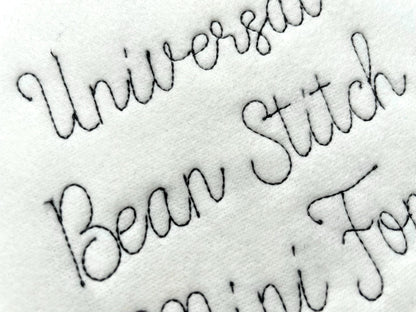 Universal
Bean Stitch
Mini Fon